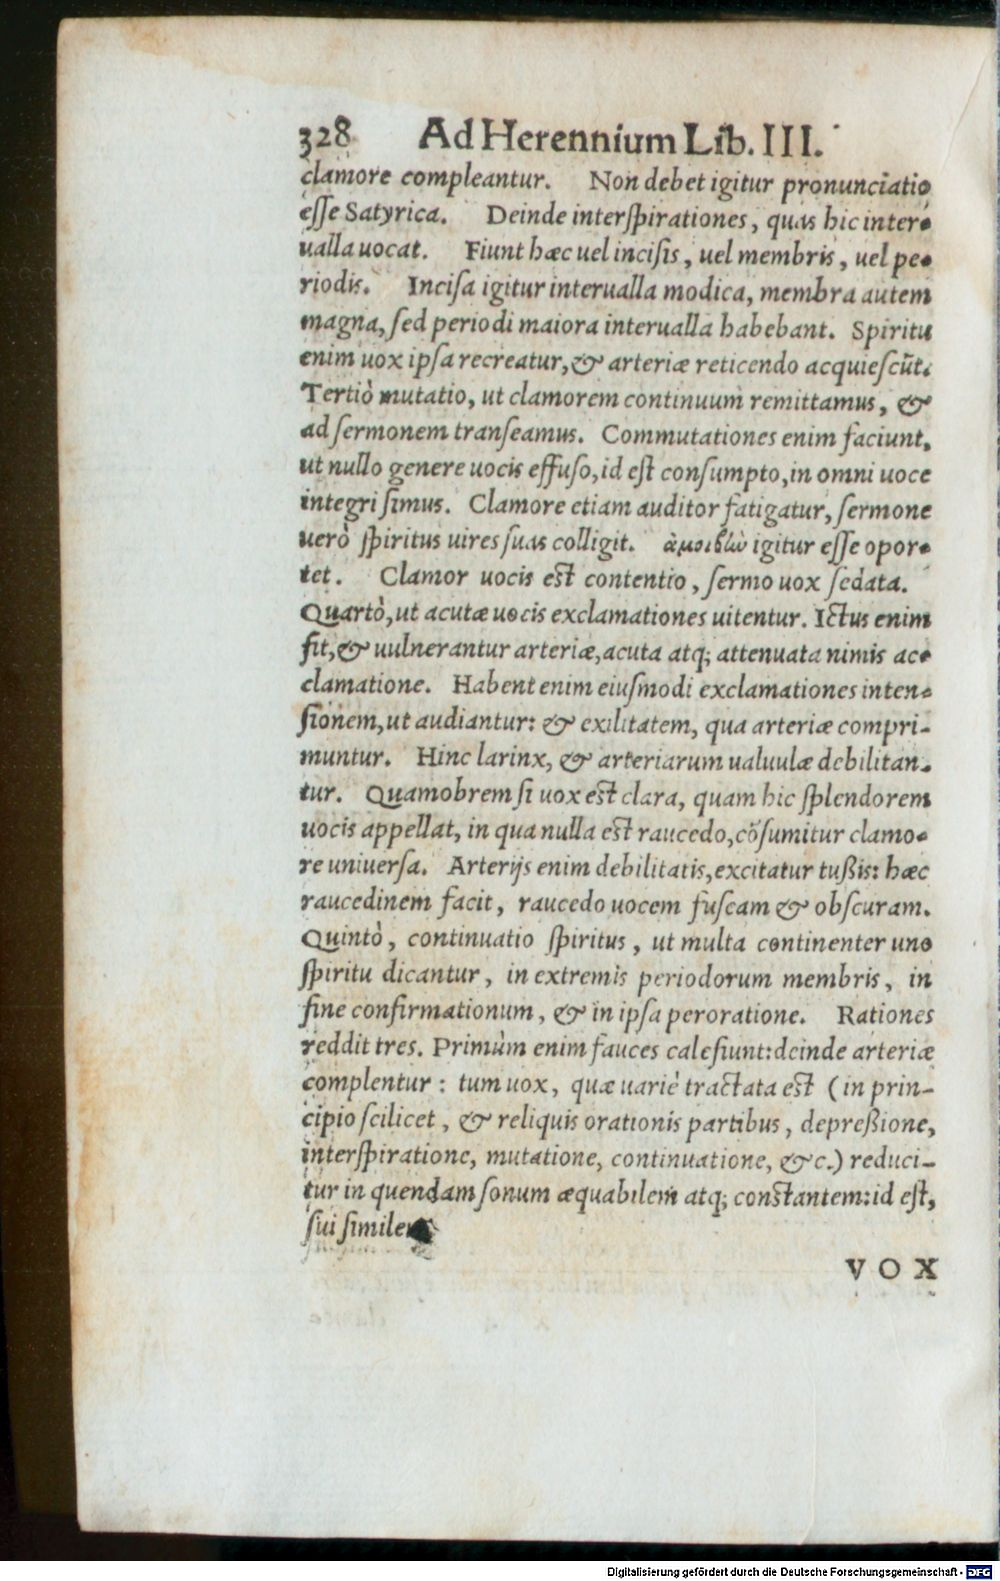 328 Ad Herennium Lib. III.
clamore compleantur. Non debet igitur pronunciatio
esse Satyrica. Deinde interspirationes, quas hic inter-
ualla uocat. Fiunt hæc uel incisis, uel membris, uel pe-
riodis. Incisa igitur interualla modica, membra autem
magna, sed periodi maiora interualla habebant. Spiritu
enim uox ipsa recreatur, & arteriæ reticendo acquiescũt.
Tertiò mutatio, ut clamorem continuum remittamus, &
ad sermonem transeamus. Commutationes enim faciunt,
ut nullo genere uocis effuso, id est consumpto, in omni uoce
integri simus. Clamore etiam auditor fatigatur, sermone
uerò spiritus uires suas colligit. igitur esse opor-
tet. Clamor uocis est contentio, sermo uox sedata.
Quartò, ut acutæ uocis exclamationes uitentur. Ictus enim
fit, & uulnerantur arteriæ, acuta atq; attenuata nimis ac-
clamatione. Habent enim eiusmodi exclamationes inten-
sionem, ut audiantur: & exilitatem, qua arteriæ compri-
muntur. Hinc larinx, & arteriarum ualuulæ debilitan-
tur. Quamobrem si uox est clara, quam hic splendorem
uocis appellat, in qua nulla est raucedo, cõsumitur clamo-
re uniuersa. Arterijs enim debilitatis, excitatur tußis: hæc
raucedinem facit, raucedo uocem fuscam & obscuram.
Quintò, continuatio spiritus, ut multa continenter uno
spiritu dicantur, in extremis periodorum membris, in
fine confirmationum, & in ipsa peroratione. Rationes
reddit tres. Primùm enim fauces calefiunt: deinde arteriæ
complentur: tum uox, quæ uariè tractata est (in prin-
cipio scilicet, & reliquis orationis partibus, depreßione,
interspiratione, mutatione, continuatione, &c.) reduci-
tur in quendam sonum æquabilem atq; constantem: id est,
sui simile
VOX
Digitalisierung gefördert durch die Deutsche Forschungsgemeinschaft - DFG